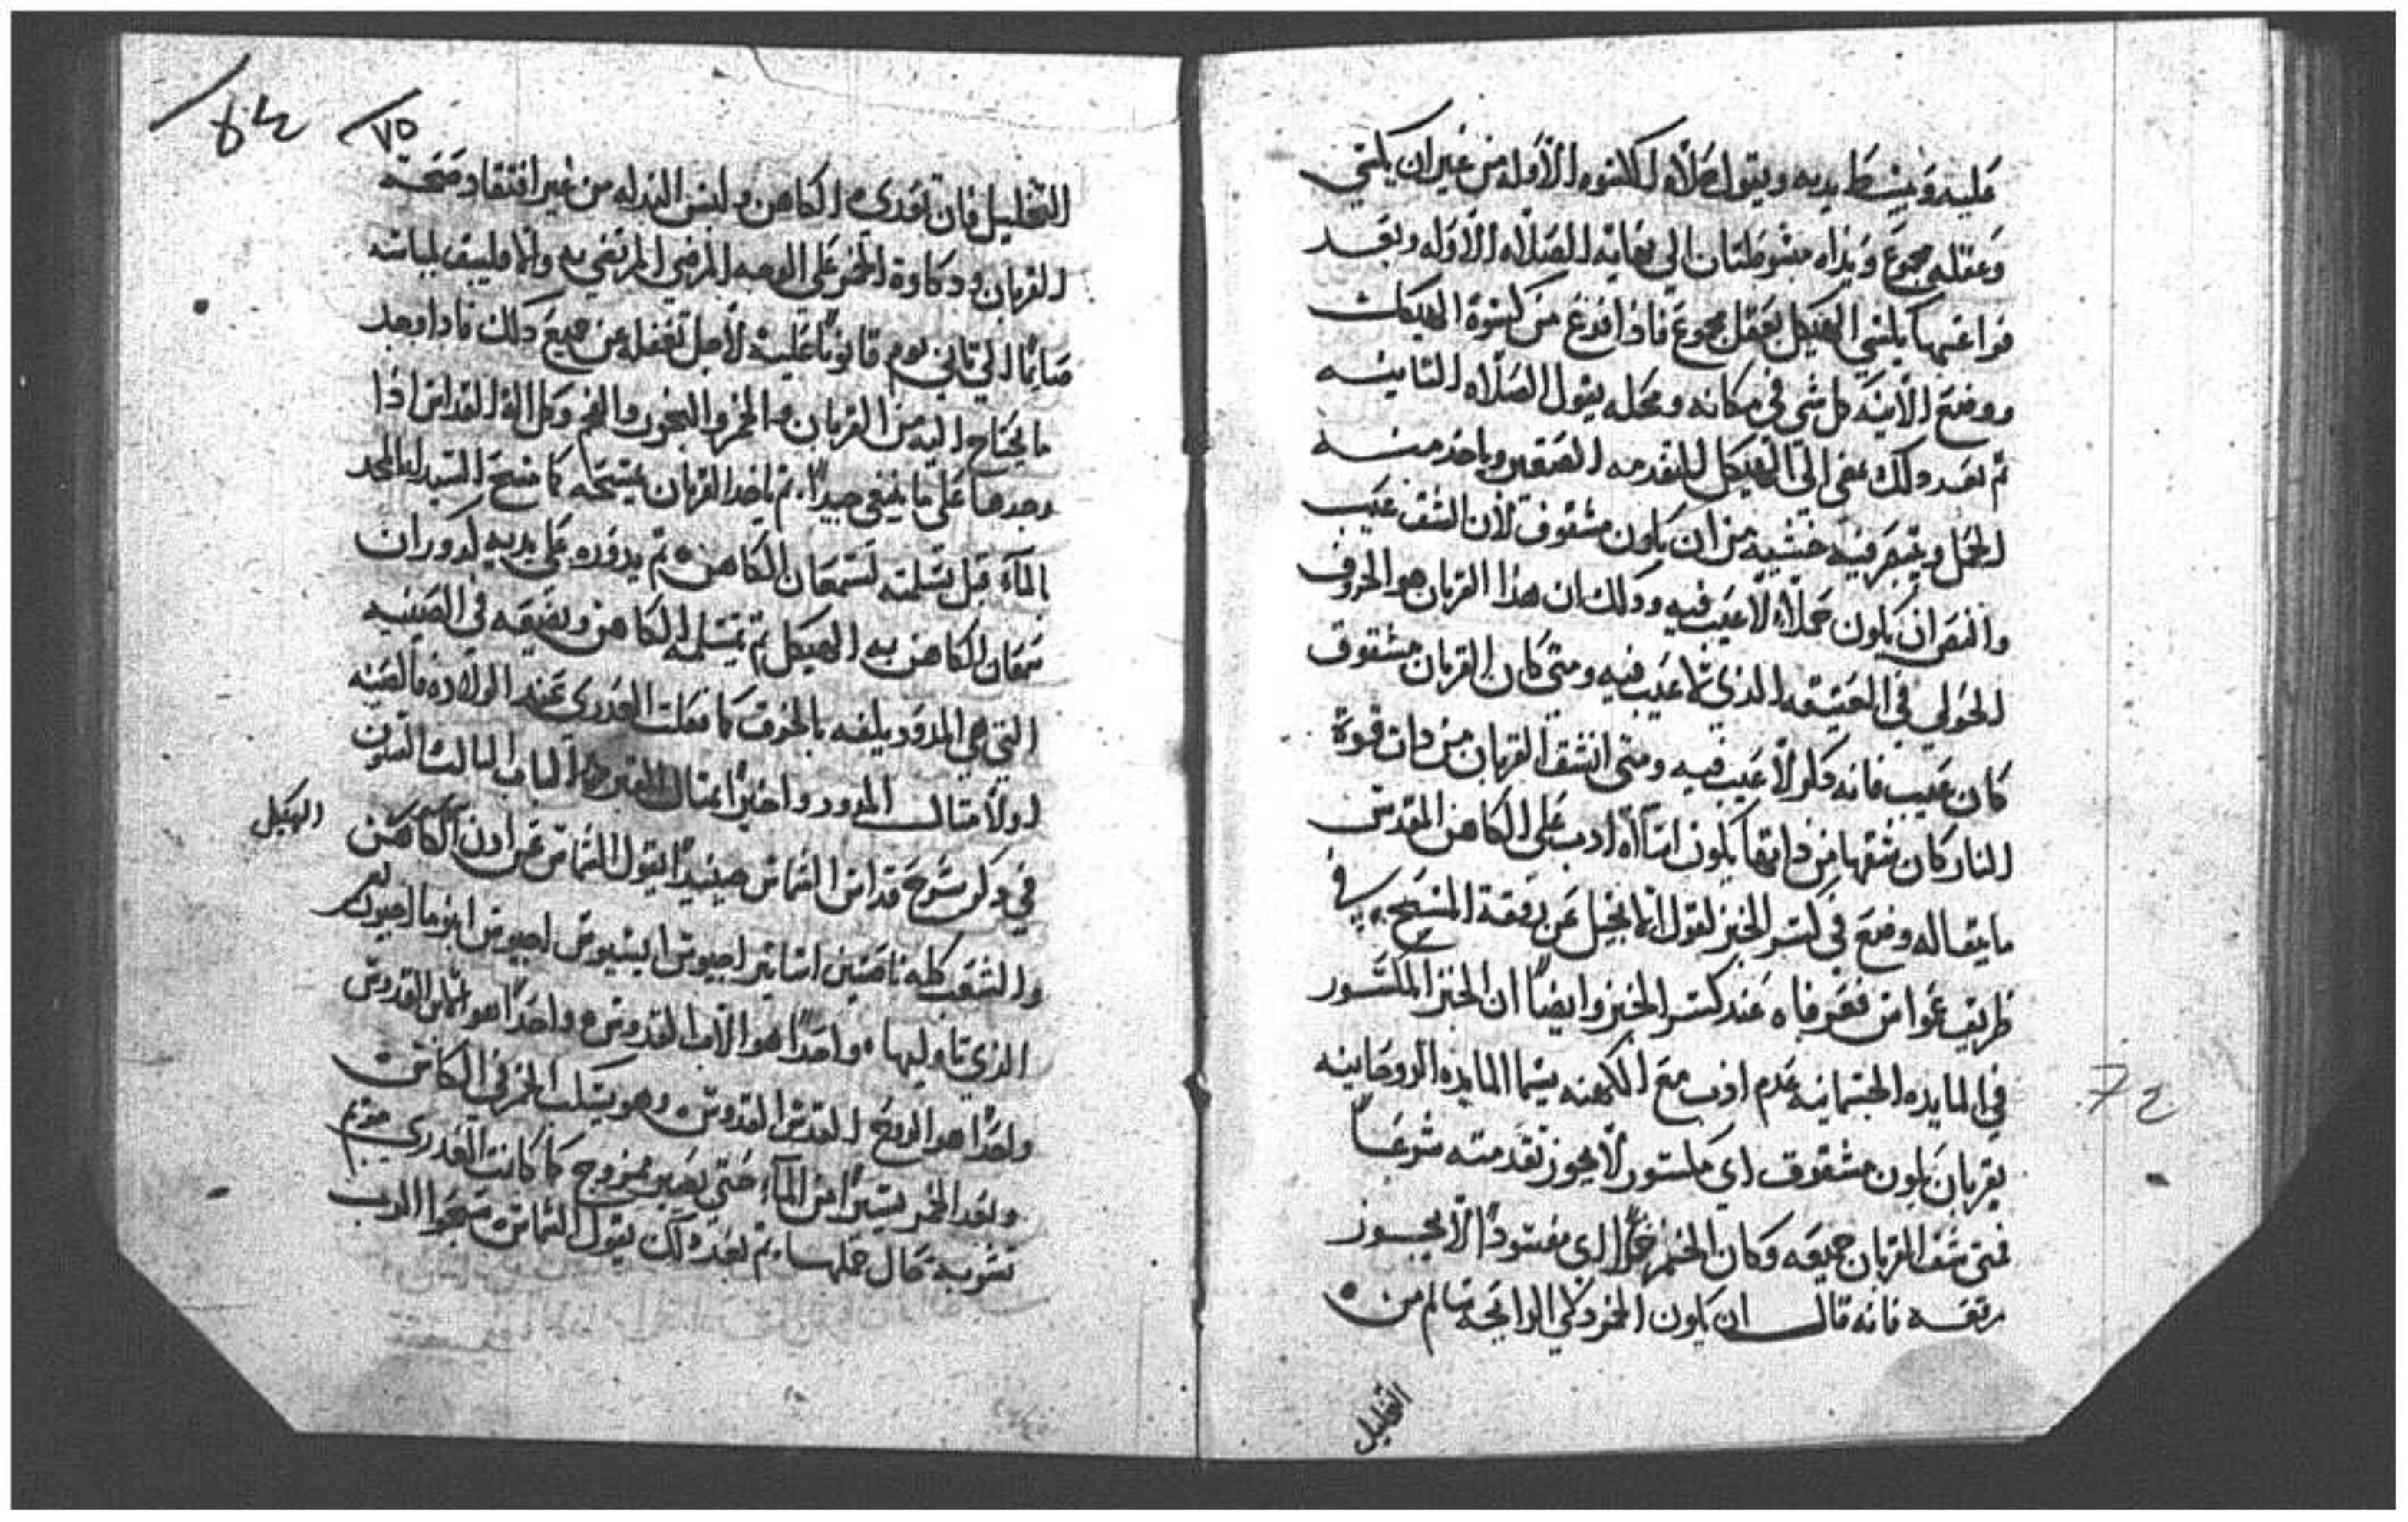 عليه ويبسط يديه ويقول صلاه لكلسوه الاوله من غير ان يلتهي
وعقله مجموع ويداه مبسوطتان الي نهاية الصلاه الاوله وبعد
فراغها يكسي الهيكل بعقل مجموع فاذا فرغ من كسوة الهيكل
ووضع الانيه كل شي في مكانه ومحله يقول الصلاه التانيه
تم بعد دلك يمضي الي الهيكل للتقدمه وياخد منه
الحمل ويتبصر فيه خشيه من ان يكون مشقوق لان الشق عيب
والنص ان يكون حملاً لا عيب فيه ودلك ان هدا القربان هو الخروف
الحولي في الحقيقه الذي لا عيب فيه ومتي كان القربان مشقوق
كان عيب فانه ذكر لا عيب فيه ومتي انشق القربان من دات قوة
النار كان شقها من داتها يكون اساآة ادب علي الكاهن المقدس
ما يقاله وضع في كسر الخبز لقول الانجيل عن رفقة المسيح في
طريق عمواس فعرفاه عند كسر الخبز وايضاً ان الخبز المكسور
في المايده الجسمانيه عدم ادب مع الكهنه سيما المايده الروحانيه
بقربان يكون مشقوق اي مكسور لا يجوز تقدمته شرعاً
فمتي شق القربان جميعه وكان الخمر خلاً اي مفسوداً لا يجوز
رفعه فانه قال ان يكون الخمر دكي الرايحه سالم من
التخليل
72
٧٥
التخليل فان تعدي الكاهن ولبس البدله من غير افتقاد صحة
القربان ودكاوة الخمر علي الوجه المرضي المرتضي به والا فليقف لباسه
صايماً الي تاني يوم قانوناً عليه لاجل تغفله عن جميع دلك فادا وجد
ما يحتاج اليه من القربان والخمر والبخور والفحم وكل الة القداس ادا
وجدها علي ما ينبغي جيداً تم ياخد القربان يمسحه كما مسح السيد له المجد
بالمآء قبل تسلمته لسمعان الكاهن تم يدوره علي يديه لدوران
سمعان الكاهن به الهيكل تم يتسلمه الكاهن ويضعه في الصينيه
التي هي المدود ويلفه بالخرق كما فعلت العدري عند الولاده فالصنيه
اولاً متال المدود واخيراً متال القبر الباب التالت
في دكر شرح قداس الشماس حينيداً يقول الشماس عن ادن الكاهن
الهيكل
والشعب كله ناصتين اجيوس ايسيوس اجيوس
الذي تاويلها واحداً هو الاب القدوس واحداً هو الابن القدوس
واحداً هو الروح القدس القدوس وهو يسكب الخمر في الكاس
وبعد الخمر يسيراً من المآء حتي يصير ممزوج كما كانت العدري مريم
تشربه حال حملها تم بعد دلك يقول الشماس سبحوا الرب